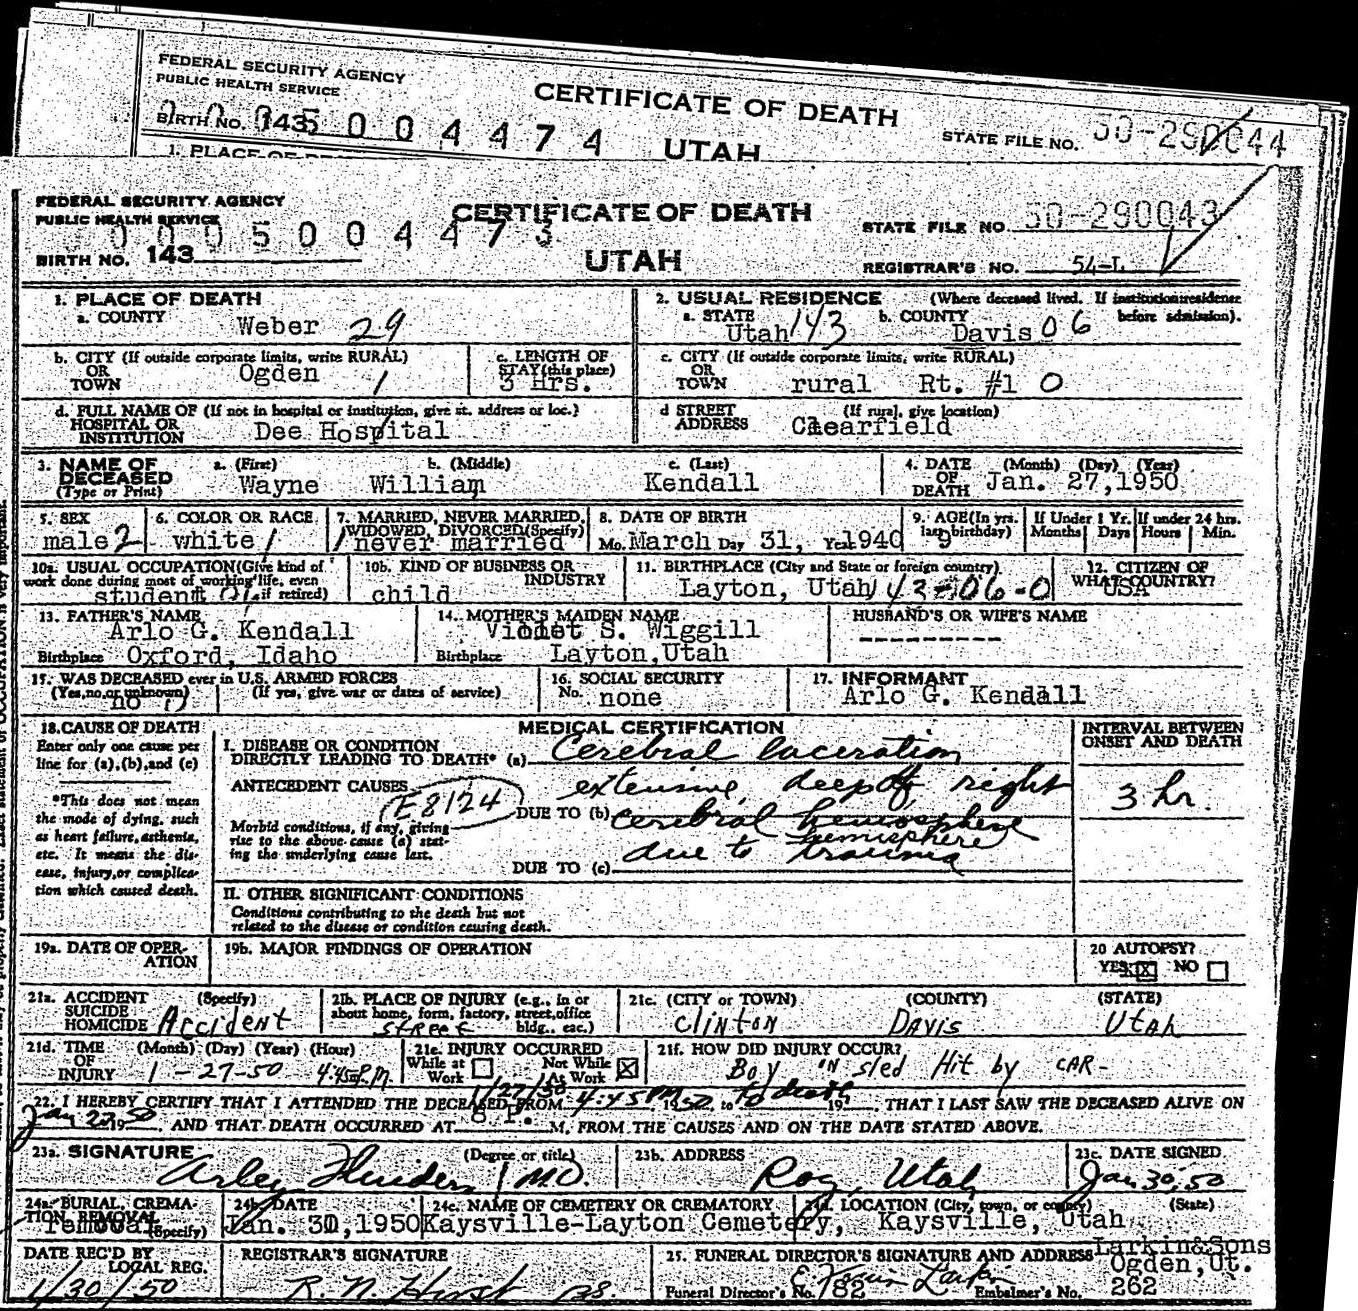 FEDERAL SECURITY AGENCY
PUBLIC HEALTH SERVICE
CERTIFICATE OF DEATH
BIRTH NO. 143 0005004474
UTAH
STATE FILE NO. 50-290044
1. PLACE OF DEATH
FEDERAL SECURITY AGENCY
PUBLIC HEALTH SERVICE
CERTIFICATE OF DEATH
STATE FILE NO. 50-290043
0005004473
BIRTH NO. 143
UTAH
REGISTRAR'S NO. 54-L
1. PLACE OF DEATH
a. COUNTY Weber 29
2. USUAL RESIDENCE (Where deceased lived. If institution: residence before admission).
a. STATE Utah 143 b. COUNTY Davis 06
b. CITY (If outside corporate limits, write RURAL) OR TOWN Ogden 1
c. LENGTH OF STAY (this place) 3 Hrs.
c. CITY (If outside corporate limits, write RURAL) OR TOWN rural Rt. #1 0
d. FULL NAME OF (If not in hospital or institution, give st. address or loc.) HOSPITAL OR INSTITUTION Dee Hospital
d STREET ADDRESS (If rural, give location) Clearfield
3. NAME OF DECEASED (Type or Print)
a. (First) Wayne b. (Middle) William c. (Last) Kendall
4. DATE OF DEATH (Month) (Day) (Year) Jan. 27,1950
5. SEX male 2
6. COLOR OR RACE white 1
7. MARRIED, NEVER MARRIED, WIDOWED, DIVORCED (Specify) 1 never married
8. DATE OF BIRTH Mo. March Day 31, Year 1940
9. AGE (In yrs. last birthday) 9
If Under 1 Yr. Months Days
If under 24 hrs. Hours Min.
10a. USUAL OCCUPATION (Give kind of work done during most of working life, even if retired) student
10b. KIND OF BUSINESS OR INDUSTRY child
11. BIRTHPLACE (City and State or foreign country) Layton, Utah 143-06-0
12. CITIZEN OF WHAT COUNTRY? USA
13. FATHER'S NAME Arlo G. Kendall
Birthplace Oxford, Idaho
14. MOTHER'S MAIDEN NAME Violet S. Wiggill
Birthplace Layton, Utah
HUSBAND'S OR WIFE'S NAME ---------
15. WAS DECEASED ever in U.S. ARMED FORCES
(Yes, no, or unknown) (If yes, give war or dates of service) no
16. SOCIAL SECURITY No. none
17. INFORMANT Arlo G. Kendall
18. CAUSE OF DEATH
Enter only one cause per line for (a), (b), and (c)
*This does not mean the mode of dying, such as heart failure, asthenia, etc. It means the disease, injury, or complication which caused death.
MEDICAL CERTIFICATION
I. DISEASE OR CONDITION DIRECTLY LEADING TO DEATH* (a) Cerebral laceration
ANTECEDENT CAUSES extensive, deep of right
E8124
Morbid conditions, if any, giving rise to the above cause (a) stating the underlying cause last.
DUE TO (b) cerebral hemisphere
hemisphere
due to trauma
DUE TO (c)
INTERVAL BETWEEN ONSET AND DEATH
3 hr.
II. OTHER SIGNIFICANT CONDITIONS
Conditions contributing to the death but not related to the disease or condition causing death.
19a. DATE OF OPERATION
19b. MAJOR FINDINGS OF OPERATION
20 AUTOPSY?
YES X NO
21a. ACCIDENT SUICIDE HOMICIDE (Specify) Accident
21b. PLACE OF INJURY (e.g., in or about home, farm, factory, street, office bldg., etc.) street
21c. (CITY or TOWN) (COUNTY) (STATE)
Clinton Davis Utah
21d. TIME OF INJURY (Month) (Day) (Year) (Hour) 1-27-50 4:45 P.M
21e. INJURY OCCURRED While at Work Not While At Work X
21f. HOW DID INJURY OCCUR?
Boy in sled Hit by CAR-
22. I HEREBY CERTIFY THAT I ATTENDED THE DECEASED FROM 1/27/50 4:45 PM 1950, to death 19 , THAT I LAST SAW THE DECEASED ALIVE ON
Jan 27 1950, AND THAT DEATH OCCURRED AT 8 P. M. FROM THE CAUSES AND ON THE DATE STATED ABOVE.
23a. SIGNATURE (Degree or title) Arley Flinders MD.
23b. ADDRESS Roy, Utah
23c. DATE SIGNED Jan 30, 50
24a. BURIAL, CREMATION, REMOVAL (Specify) removal
24b. DATE Jan. 30,1950
24c. NAME OF CEMETERY OR CREMATORY Kaysville-Layton Cemetery,
24d. LOCATION (City, town, or county) (State) Kaysville, Utah
DATE REC'D BY LOCAL REG. 1/30/50
REGISTRAR'S SIGNATURE R. N. Hirst
25. FUNERAL DIRECTOR'S SIGNATURE AND ADDRESS Larkin&Sons
Ogden, Ut.
Larkin
Funeral Director's No. 782 Embalmer's No. 262